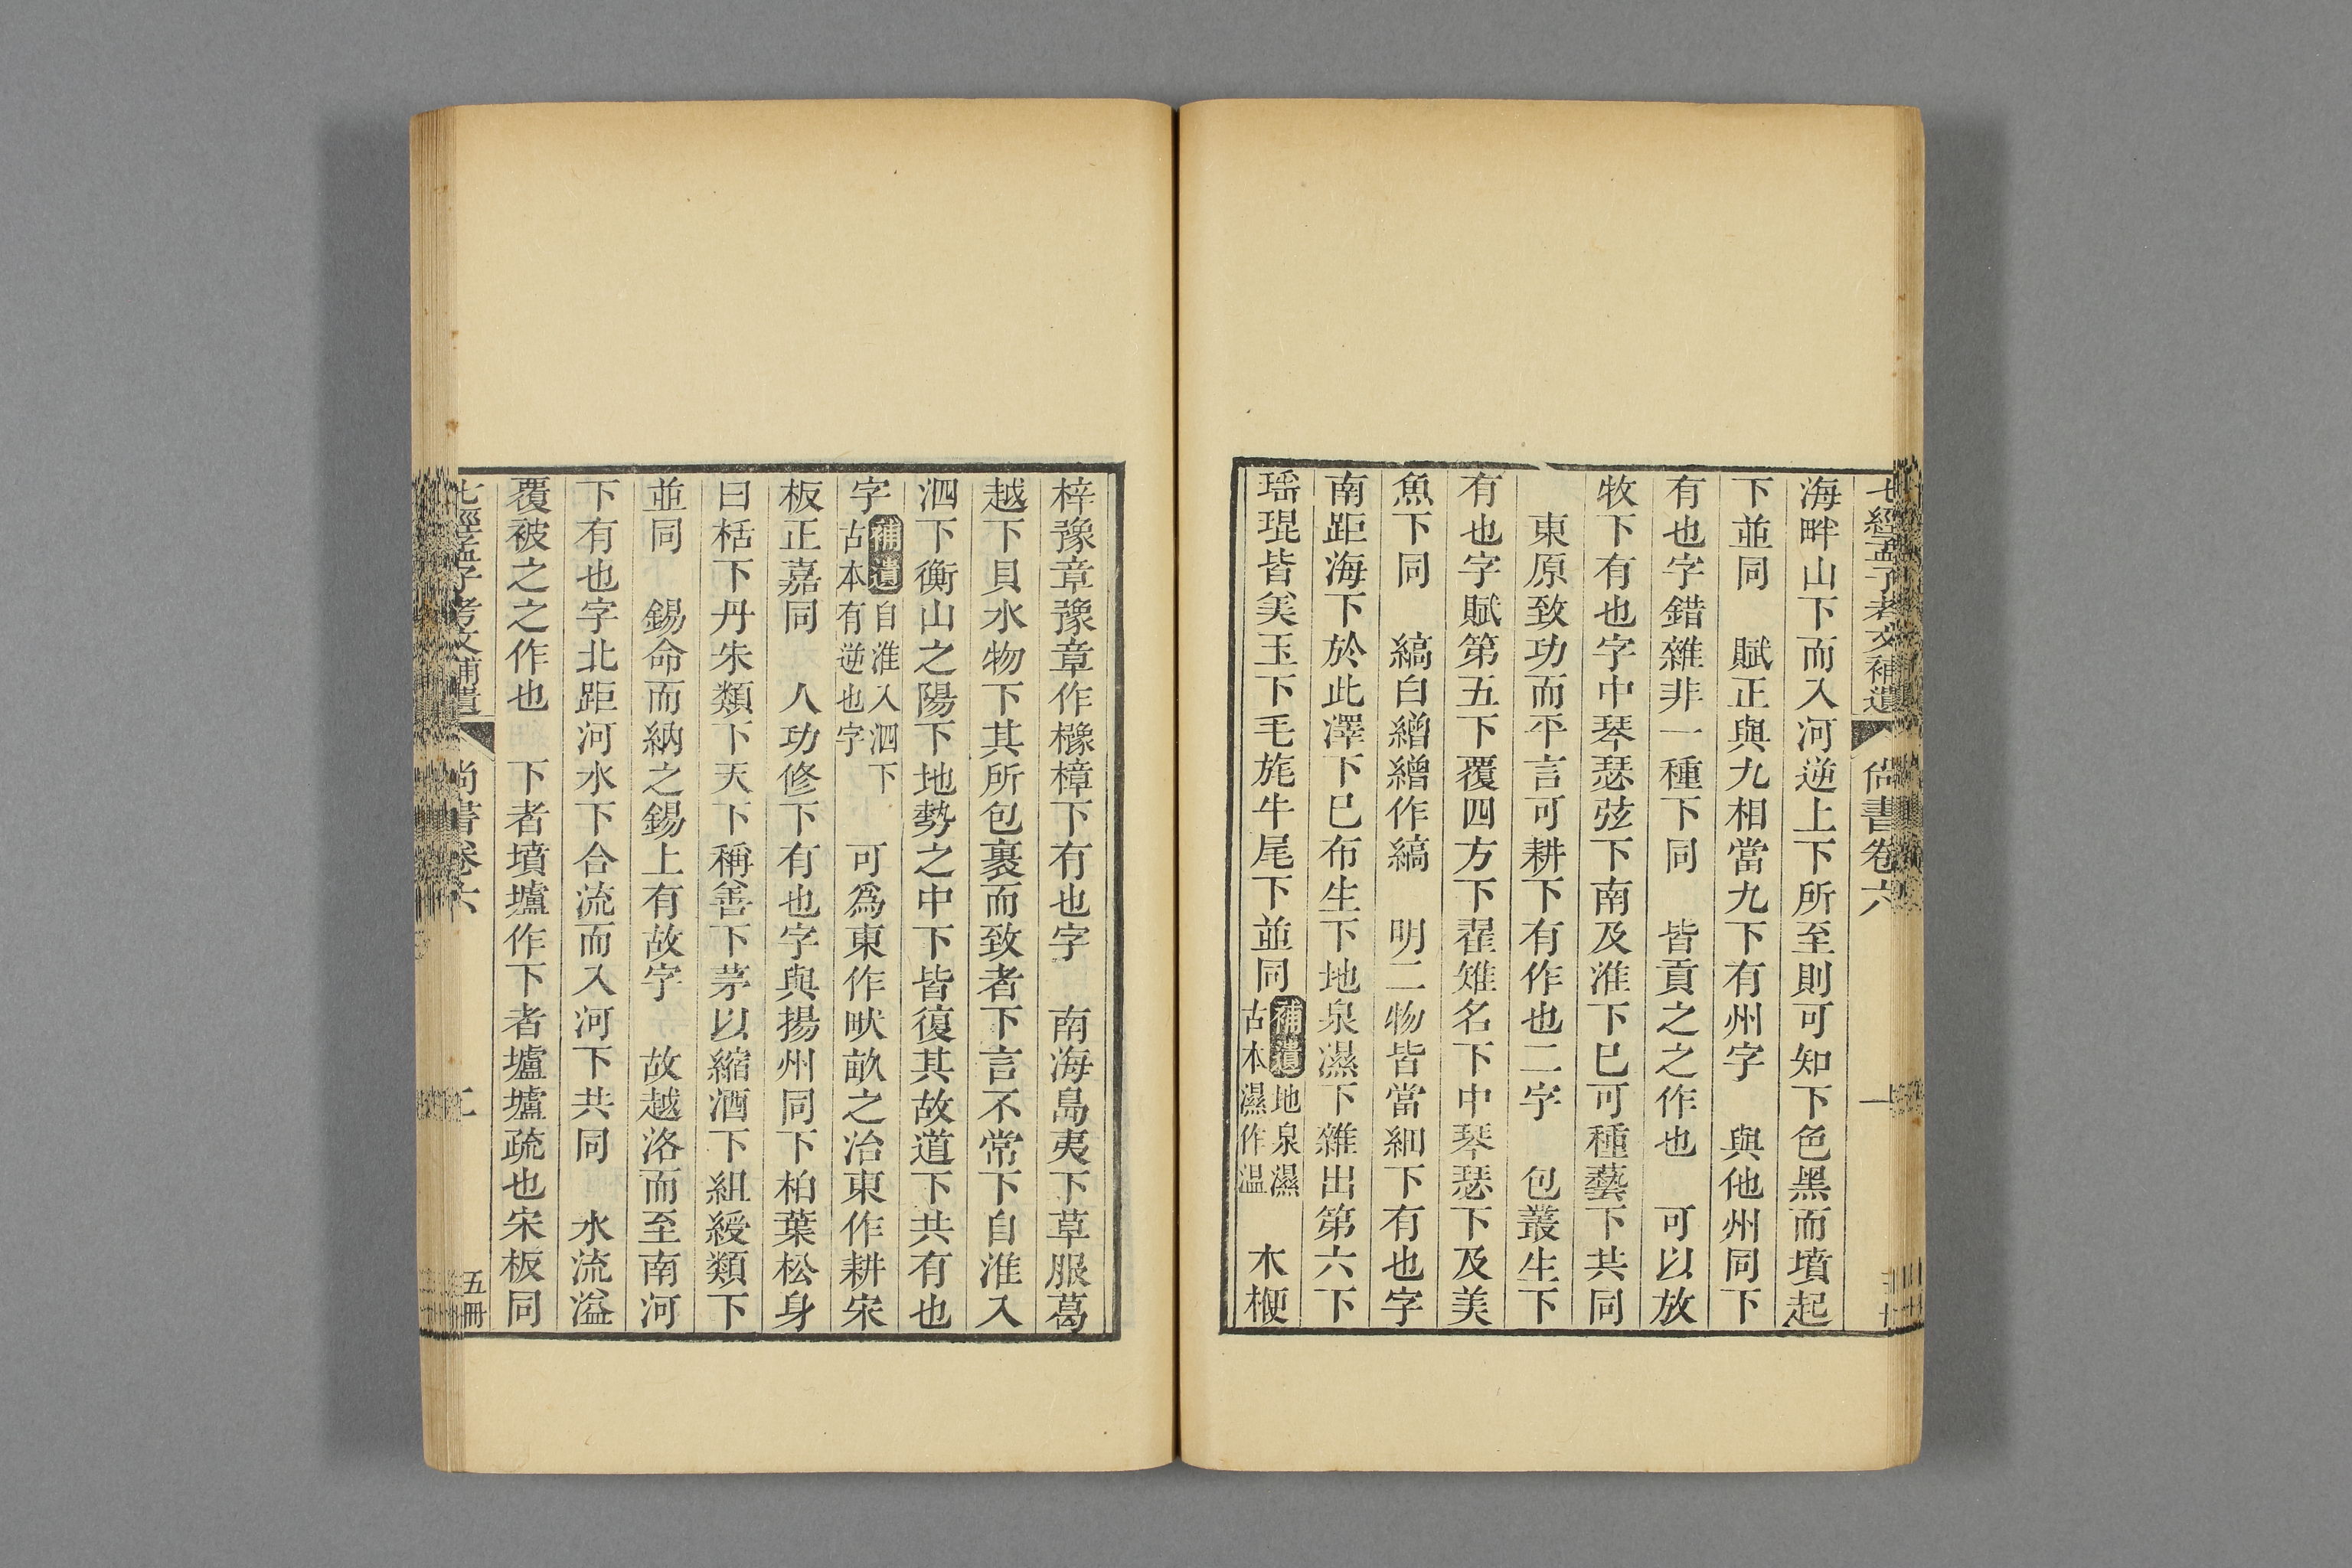 七經孟子考文補遺 尚書卷六 一
海畔山下而入河逆上下所至則可知下色黑而墳起
下並同 賦正與九相當九下有州字 與他州同下
有也字錯雜非一種下同 皆貢之之作也 可以放
牧下有也字中琴瑟弦下南及淮下巳可種藝下共同
東原致功而平言可耕下有作也二字 包叢生下
有也字賦第五下覆四方下翟雉名下中琴瑟下及美
魚下同 縞白繒繒作縞 明二物皆當細下有也字
南距海下於此澤下巳布生下地泉濕下雜出第六下
瑶琨皆美玉下毛旄牛尾下並同補遺地泉濕古本濕作温 木楩
梓豫章豫章作櫲樟下有也字 南海島夷下草服葛
越下貝水物下其所包裹而致者下言不常下自淮入
泗下衡山之陽下地勢之中下皆復其故道下共有也
字補遺自淮入泗下古本有逆也字 可爲東作畎畝之治東作耕宋
板正嘉同 人功修下有也字與揚州同下柏葉松身
曰栝下丹朱類下天下稱善下茅以縮酒下組綬類下
並同 錫命而納之錫上有故字 故越洛而至南河
下有也字北距河水下合流而入河下共同 水流溢
覆被之之作也 下者墳壚作下者壚壚疏也宋板同
七經孟子考文補遺 尚書卷六 二 五冊